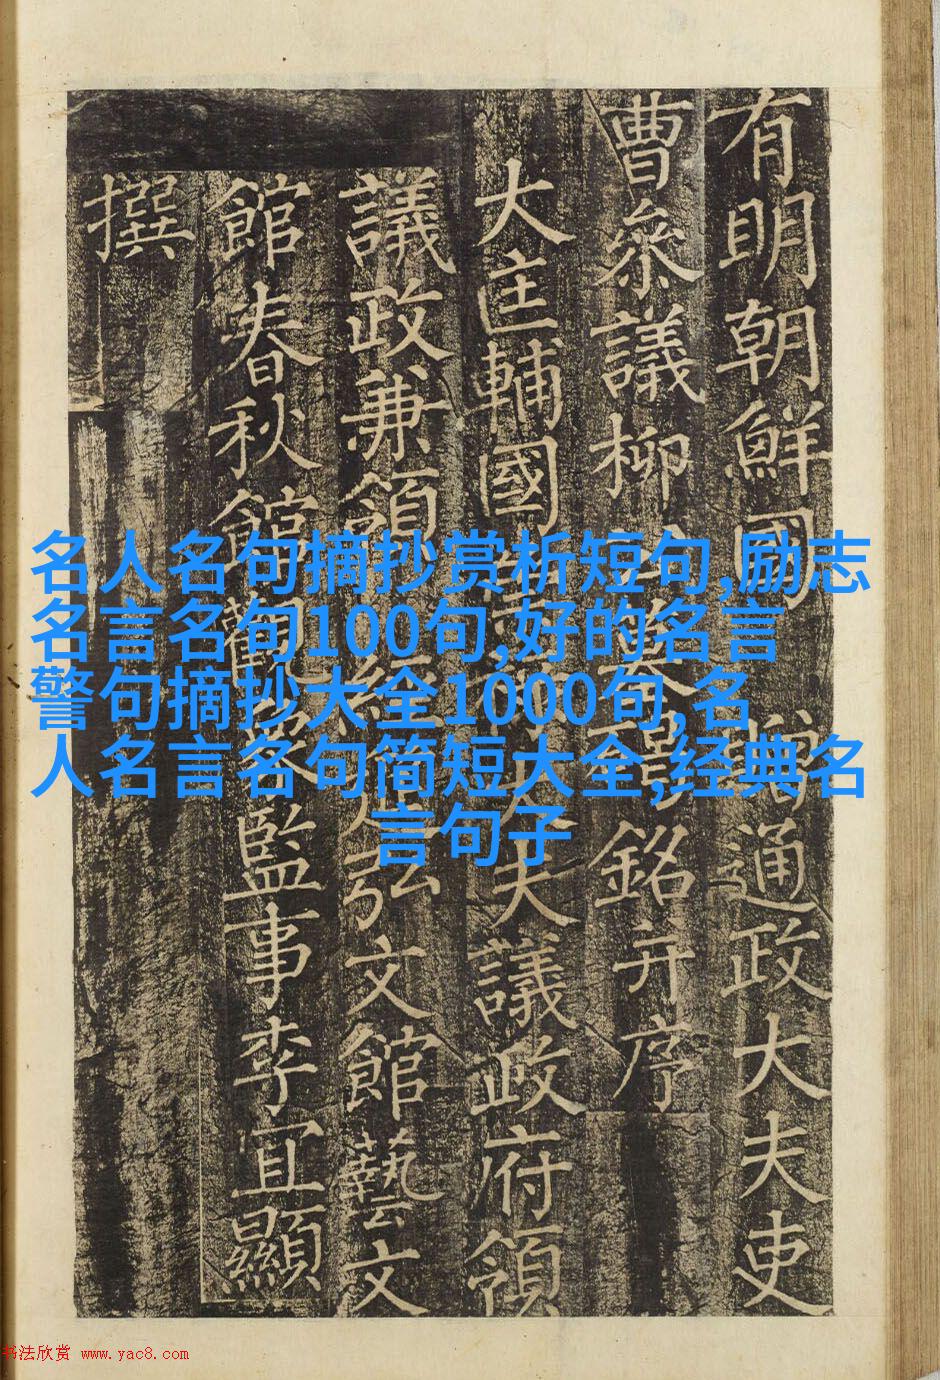 有明朝鮮國通政大夫吏
曹參議柳公墓碣銘并序
大匡輔國大夫議政府領
議政兼領經筵弘文館藝文
館春秋館觀象監事李宜顯
撰
名人名句摘抄赏析短句,励志
名言名句100句,好的名言
警句摘抄大全1000句,名
人名言名句简短大全,经典名
言句子
书法欣赏 www.yac8.com